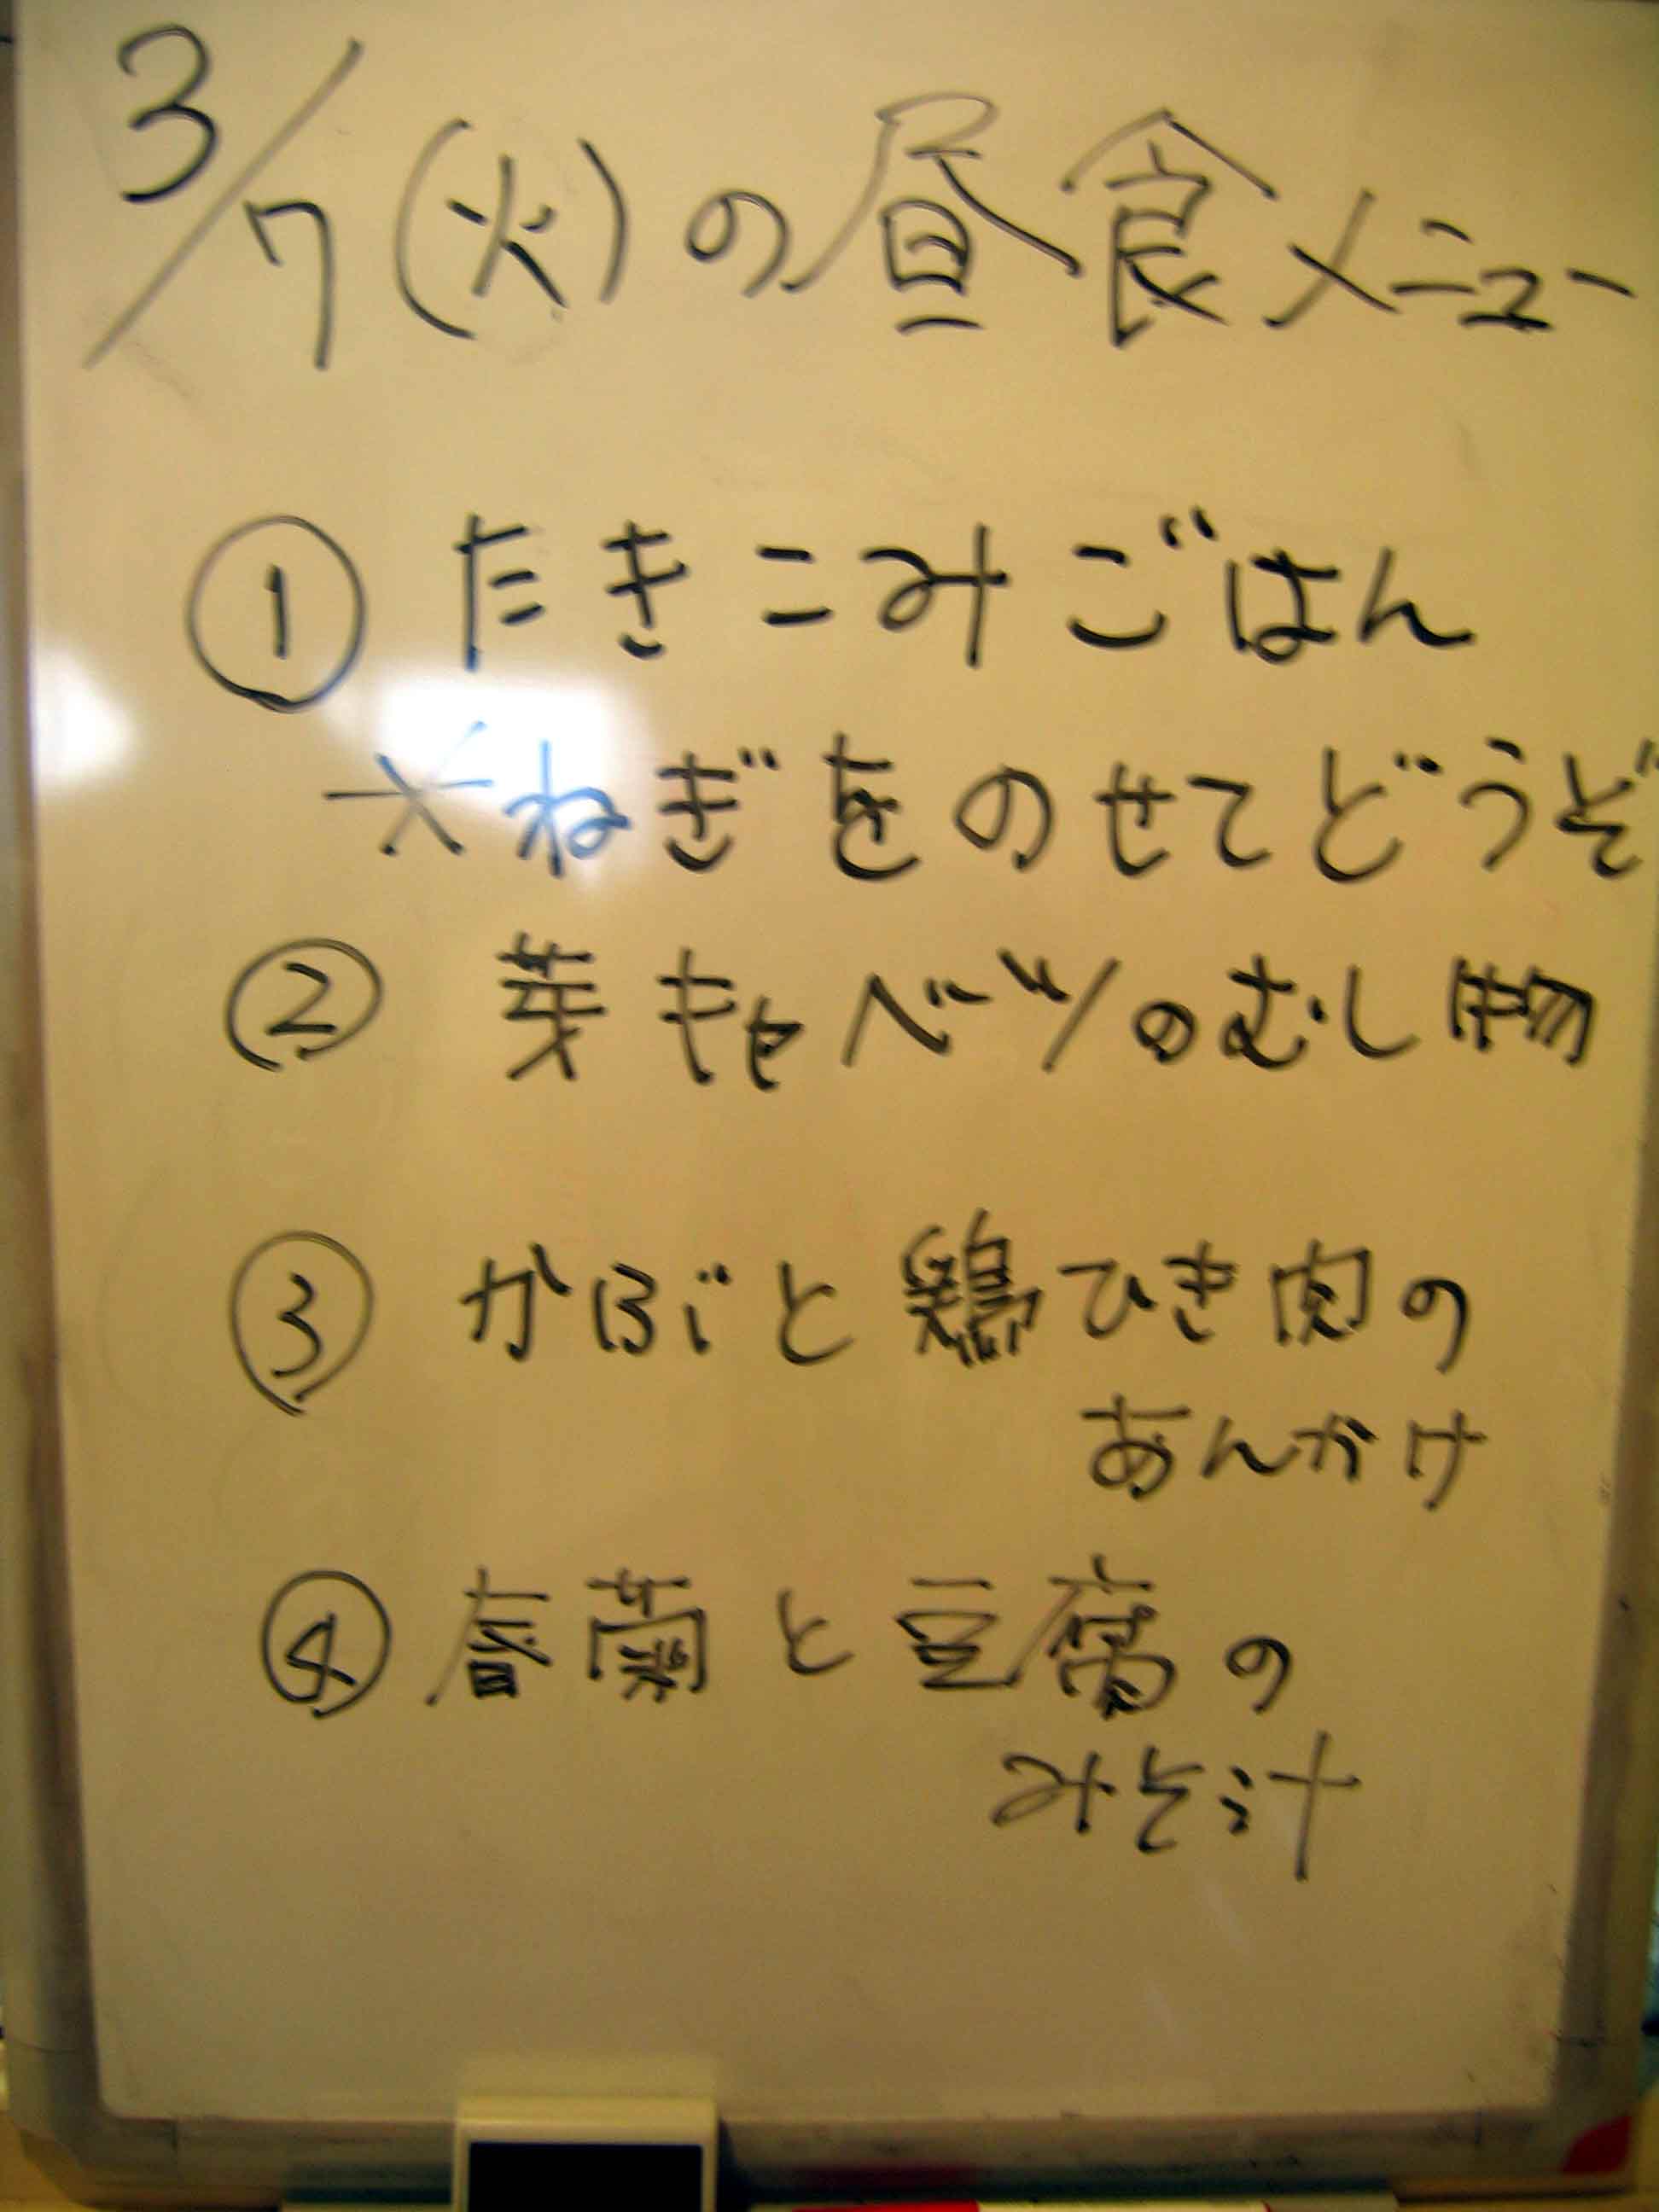 3/7(火)の昼食メニュー
① たきこみごはん
※ねぎをのせてどうぞ
② 芽キャベツのむし物
③ かぶと鶏ひき肉の
あんかけ
④ 春菊と豆腐の
みそ汁